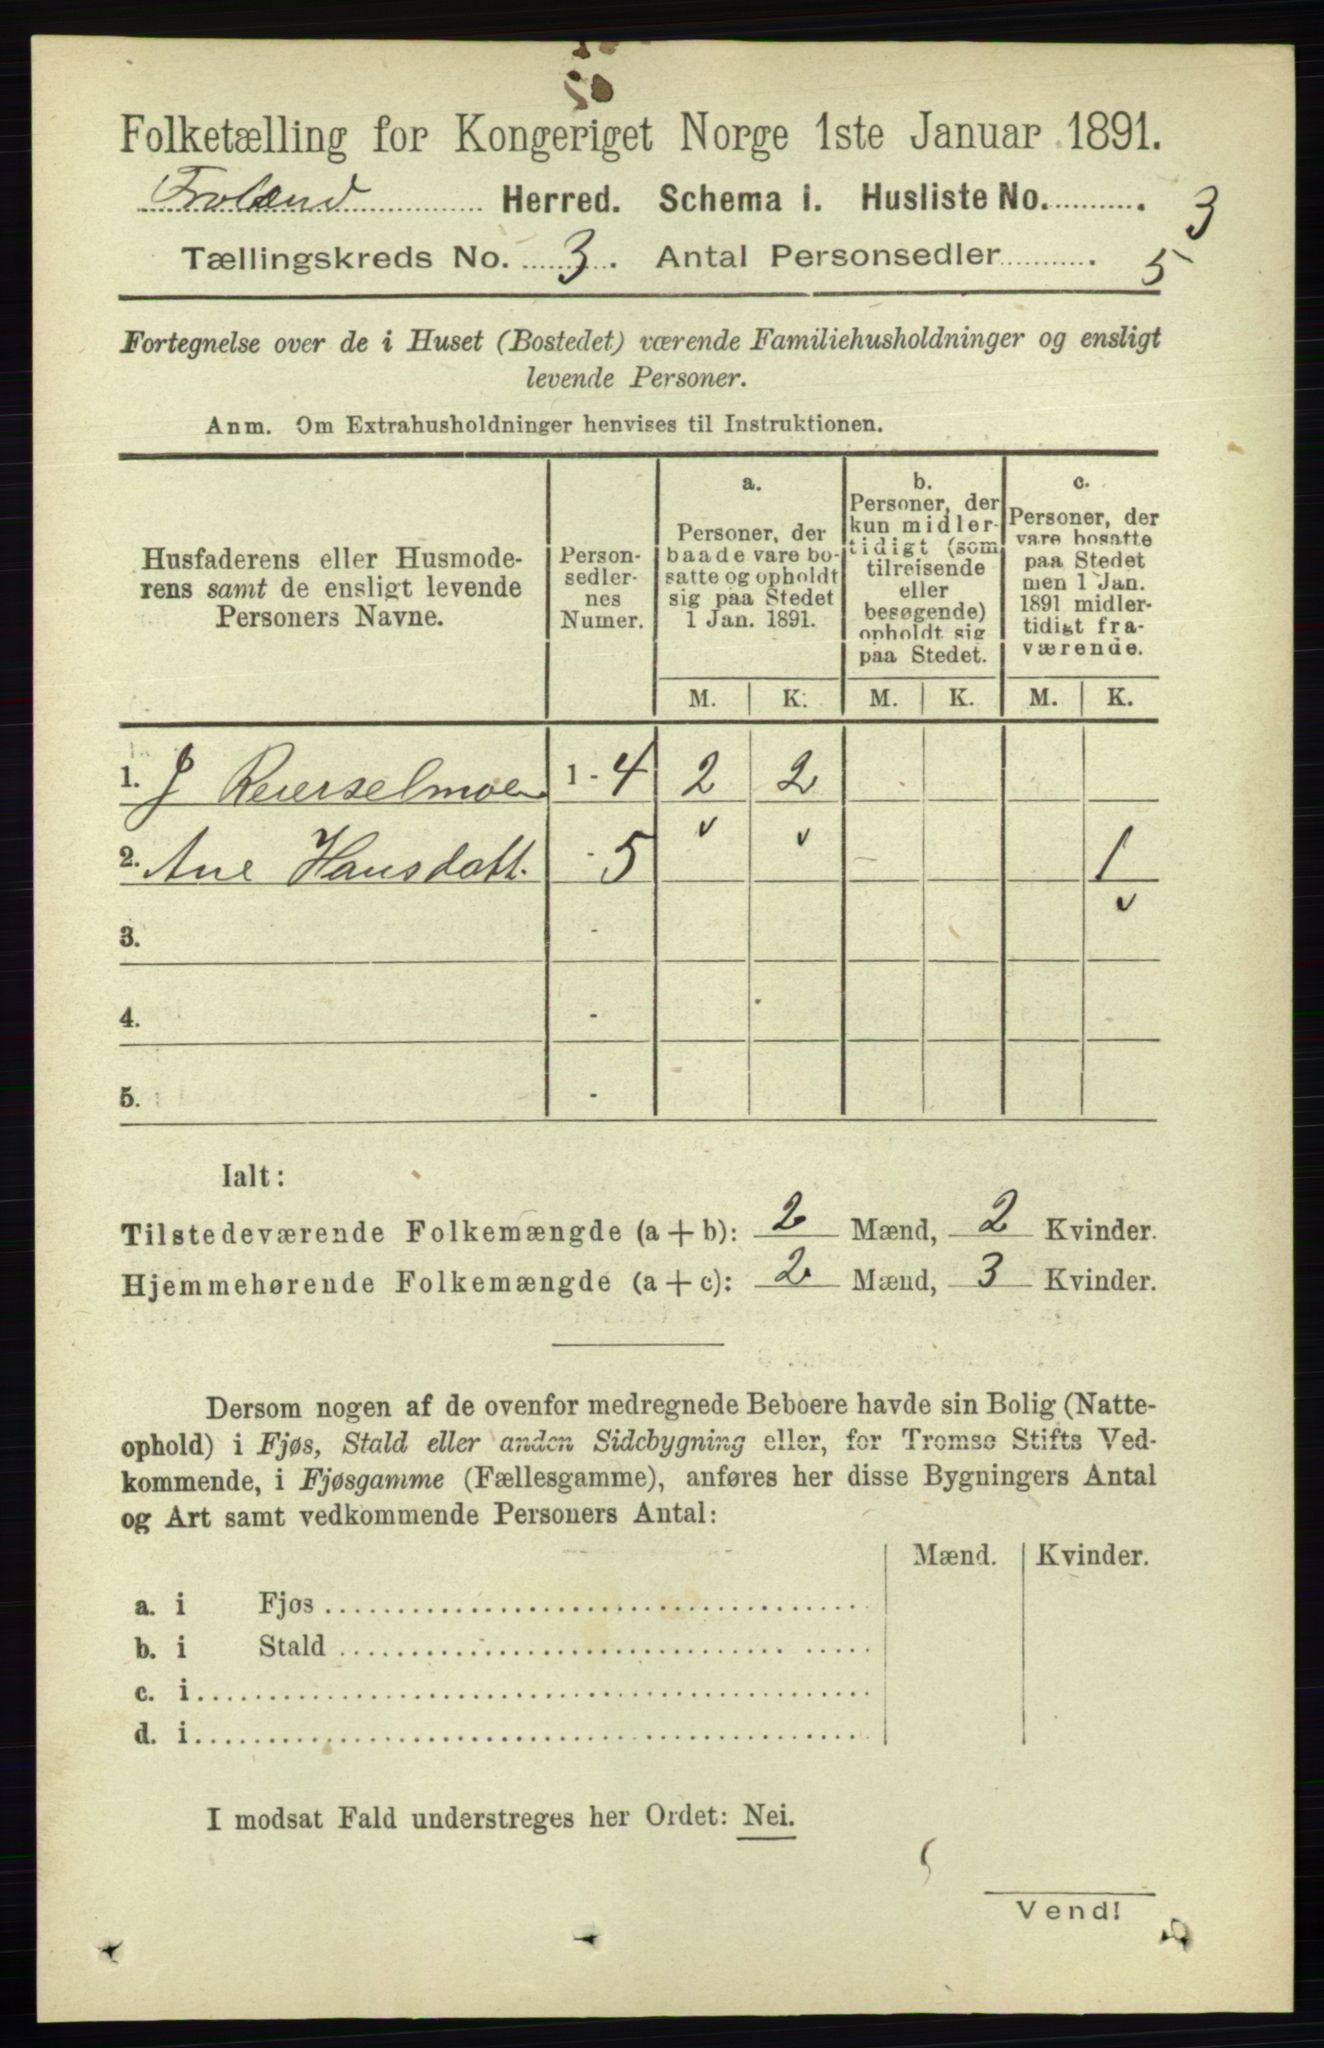 Folketælling for Kongeriget Norge 1ste Januar 1891.
Froland Herred. Schema 1. Husliste No. 3
Tællingskreds No. 3. Antal Personsedler 5
Fortegnelse over de i Huset (Bostedet) værende Familiehusholdninger og ensligt
levende Personer.
Anm. Om Extrahusholdninger henvises til Instruktionen.
Husfaderens eller Husmode-
rens samt de ensligt levende
Personers Navne.
Person-
sedler-
nes
Numer.
a.
Personer, der
baade vare bo-
satte og opholdt
sig paa Stedet
1 Jan. 1891.
b.
Personer, der
kun midler-
tidigt (som
tilreisende
eller
besøgende)
opholdt sig
paa Stedet.
c.
Personer, der
vare bosatte
paa Stedet
men 1 Jan.
1891 midler-
tidigt fra-
værende.
M. K. M. K. M. K.
1. J Reierselmoen 1 - 4 2 2
2. Ane Hansdatt. - 5 1
3. -
4. -
5. -
Ialt:
Tilstedeværende Folkemængde (a + b): 2 Mænd, 2 Kvinder.
Hjemmehørende Folkemængde (a + c): 2 Mænd, 3 Kvinder.
Dersom nogen af de ovenfor medregnede Beboere havde sin Bolig (Natte-
ophold) i Fjøs, Stald eller anden Sidebygning eller, for Tromsø Stifts Ved-
kommende, i Fjøsgamme (Fællesgamme), anføres her disse Bygningers Antal
og Art samt vedkommende Personers Antal:
Mænd. Kvinder.
a. i Fjøs
b. i Stald
c. i
d. i
I modsat Fald understreges her Ordet: Nei.
Vend!